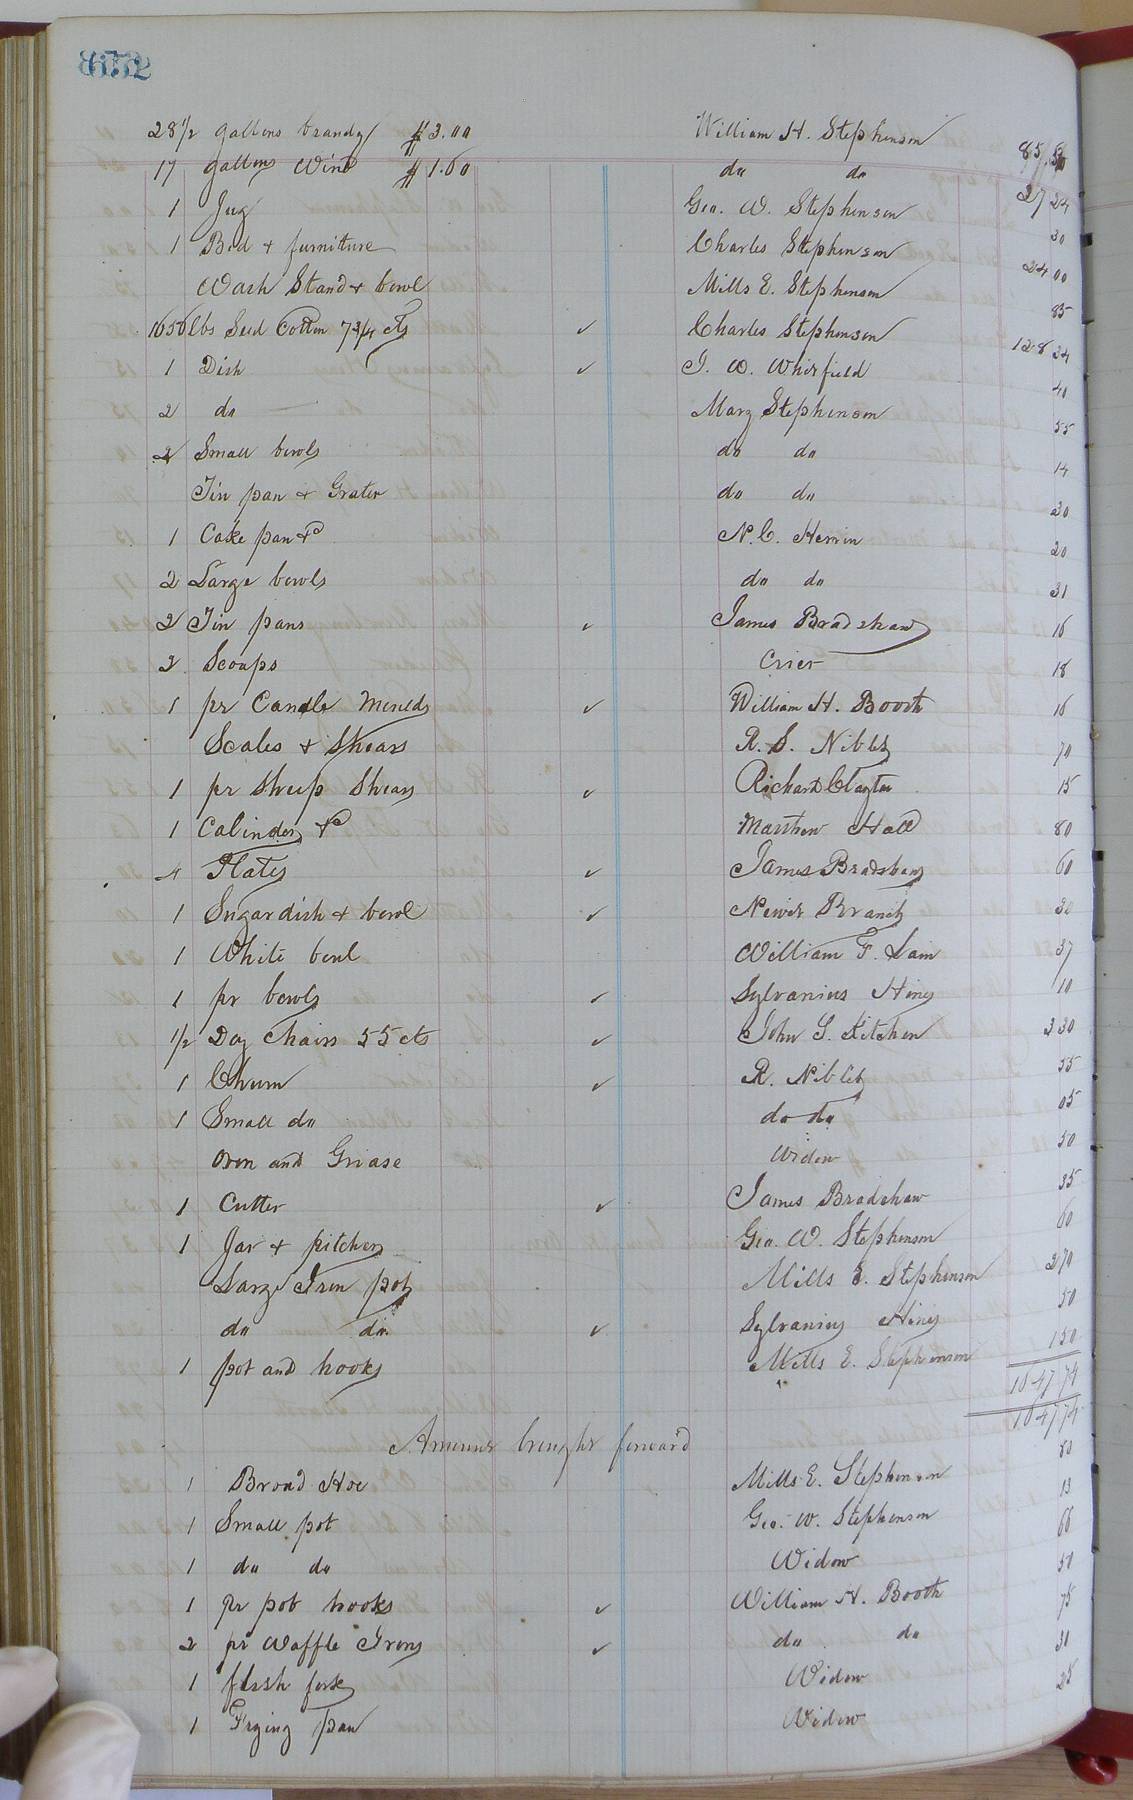 28 1/2 gallons brandy $3.00 William H. Stephenson 85.50
17 gallons Wine $1.60 do do 27 24
1 Jug Geo. W. Stephenson 30
1 Bed + furniture Charles Stephenson 24 00
Wash Stand + bowl Mills E. Stephenson 85
1656 lbs Seed Cotton 7 3/4 cts ✓ Charles Stephenson 128 34
1 Dish ✓ J. W. Whitfield 40
2 do Mary Stephenson 55
2 Small bowls do do 14
Tin pan + Grater do do 30
1 Cake pan +c N. C. Herrin 20
2 Large bowls do do 31
2 Tin pans ✓ James Bradshaw 16
2 Scoaps Crier 18
1 pr Candle Moulds ✓ William H. Booth 16
Scales + Shears R. S. Niblet 70
1 pr Sheep Shears ✓ Richard Clayton 15
1 Calinder +c Matthew Hall 80
4 Plates ✓ James Bradshaw 60
1 Sugar dish + bowl ✓ Newit Branch 30
1 White bowl William F. Lain 37
1 pr bowls ✓ Sylvanius Hines 10
1/2 Doz Chairs 55 cts ✓ John S. Kitchen 3 30
1 Churn ✓ R. Niblet 55
1 Small do do do 05
Oven and Grease Widow 50
1 Cutter ✓ James Bradshaw 35
1 Jar + pitcher Geo. W. Stephenson 60
Large Iron pot Mills E. Stephenson 2 70
do do ✓ Sylvanius Hines 50
1 pot and hooks Mills E. Stephenson 1 50
1047 74
Amount brought forward 1047 74
1 Broad Hoe Mills E. Stephenson 80
1 Small pot Geo. W. Stephenson 13
1 do do Widow 66
1 pr pot hooks ✓ William H. Booth 51
2 pr Waffle Irons ✓ do do 75
1 flesh fork Widow 31
1 Frying pan Widow 25